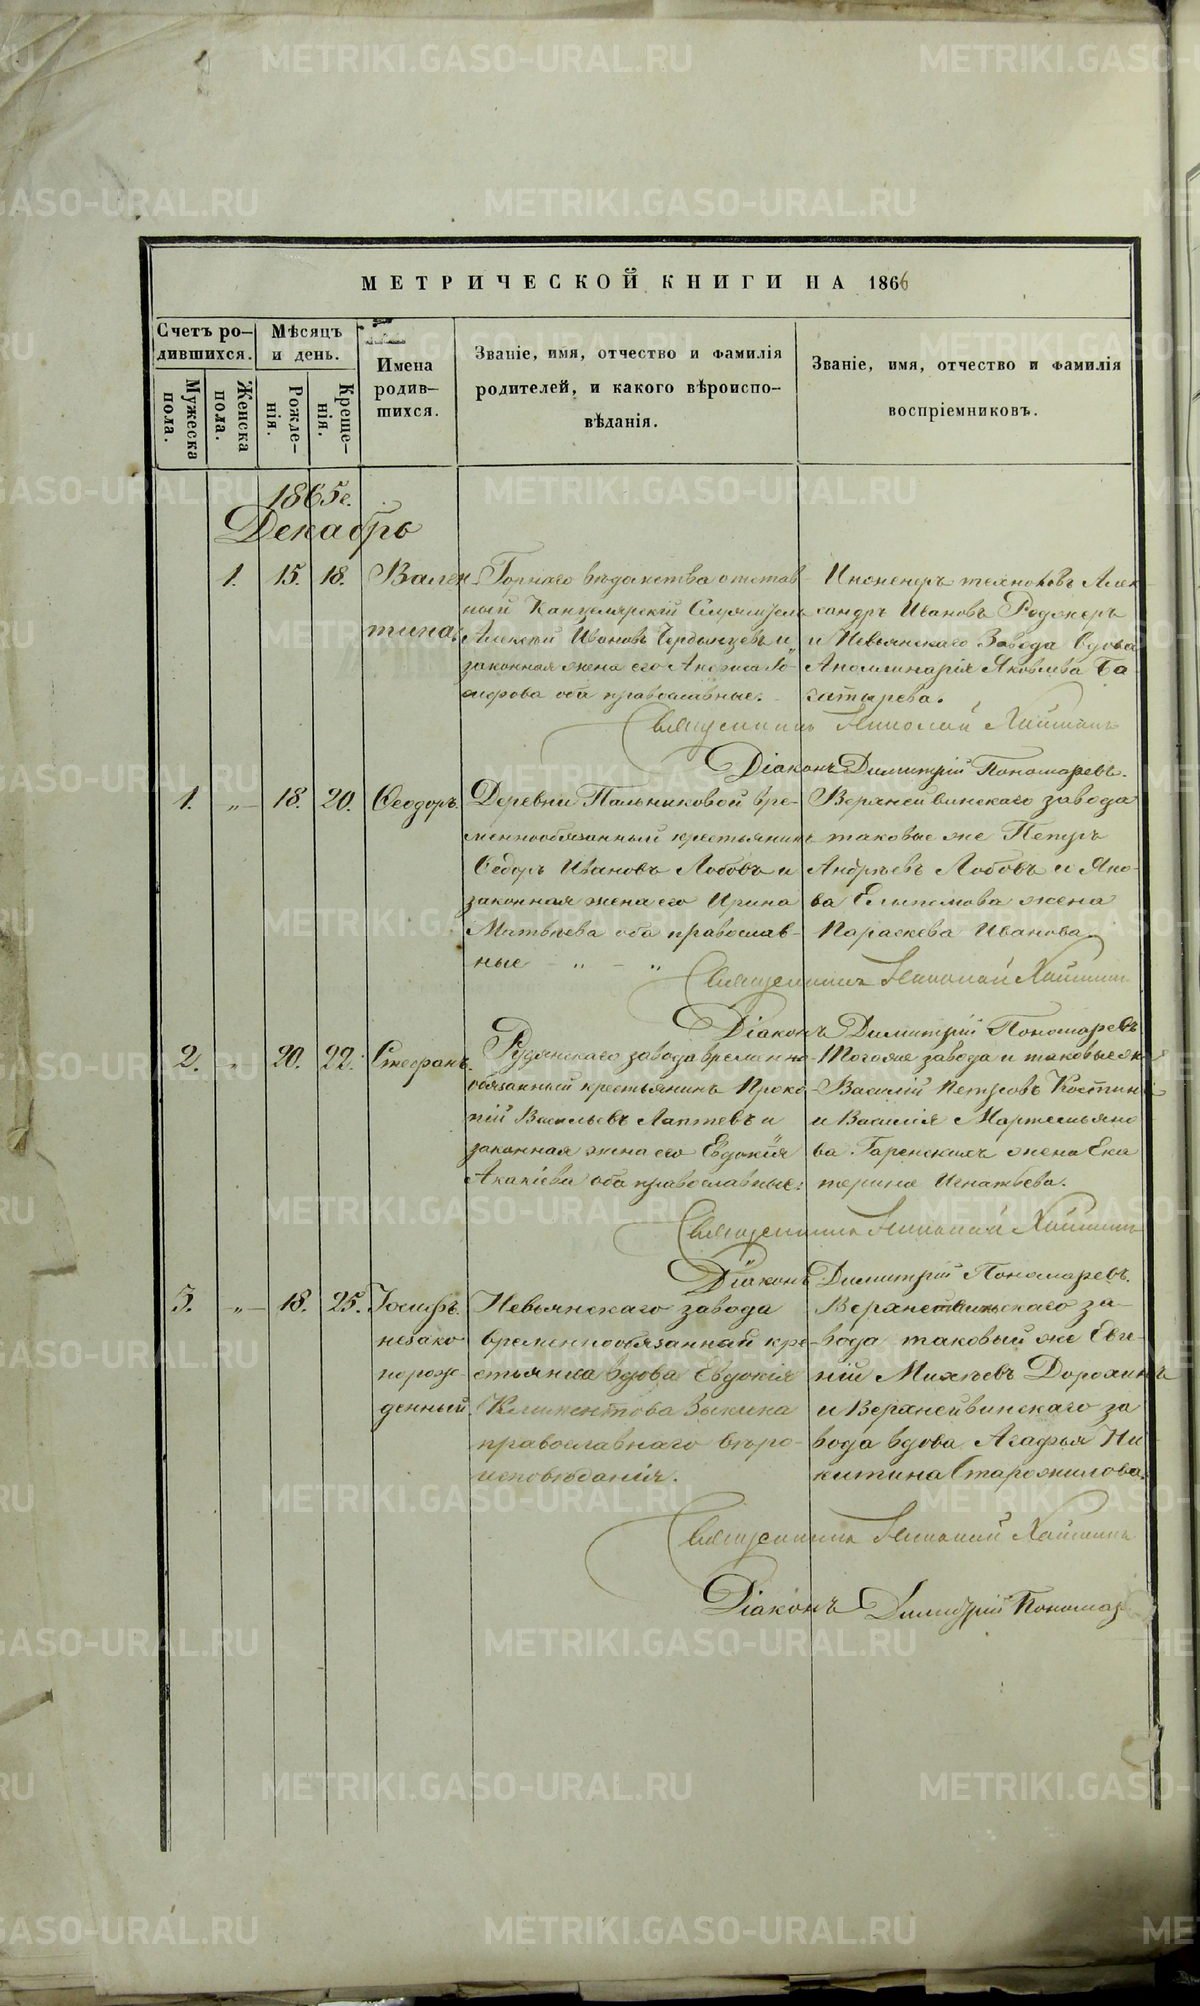 МЕТРИЧЕСКОЙ КНИГИ НА 1866
Счетъ ро-
дившихся.
Мѣсяцъ
и день.
Мужеска
пола.
Женска
пола.
Рожде-
нія.
Креще-
нія.
Имена
родив-
шихся.
Званіе, имя, отчество и фамилія
родителей, и какого вѣроиспо-
вѣданія.
Званіе, имя, отчество и фамилія
воспріемниковъ.
1865г.
Декабрь
1. 15. 18.
Вален-
тина.
Горнаго вѣдомства отстав-
ный Канцелярскій Служитель
Алексѣй Ивановъ Чердынцевъ и
законная жена его Анфиса
оба православные.
Инженеръ технологъ Алек-
сандръ Ивановъ Роджеръ
и Невьянскаго Завода вдова
Аполлинарія Яковлева Ба-
Священникъ Николай
Діаконъ Димитрій Пономаревъ.
1. „ 18. 20.
Ѳеодоръ.
Деревни Пальниковой вре-
меннообязанный крестьянинъ
Ѳедоръ Ивановъ Лобовъ и
законная жена его Ирина
Матвѣева оба православ-
ные „ „
Верхнейвинскаго завода
таковые же Петръ
Андреевъ Лобовъ и Яко-
ва жена
Параскева Иванова.
Священникъ Николай
Діаконъ Димитрій Пономаревъ
2. „ 20. 22.
Стефанъ.
Рудянскаго завода временно-
обязанный крестьянинъ Проко-
пій Васильевъ Лаптевъ и
законная жена его Евдокія
Акакіева оба православные:
Тогоже завода и таковые же
Василій Петровъ Костинъ
и Василія Мартемьяно
ва жена Ека
терина Игнатьева.
Священникъ Николай
Діаконъ Димитрій Пономаревъ.
3. „ 18. 25.
Іосифъ.
незако
норож-
денный.
Невьянскаго завода
временнообязанная кре-
стьянка вдова Евдокія
Климентова Зыкина
православнаго вѣро-
исповѣданія.
за-
вода таковый же Евге-
ній Михѣевъ Дорохинъ
и Верхнейвинскаго за
вода вдова Агафья Ни
китина Старожилова.
Священникъ Николай
Діаконъ Димитрій Пономар
METRIKI.GASO-URAL.RU